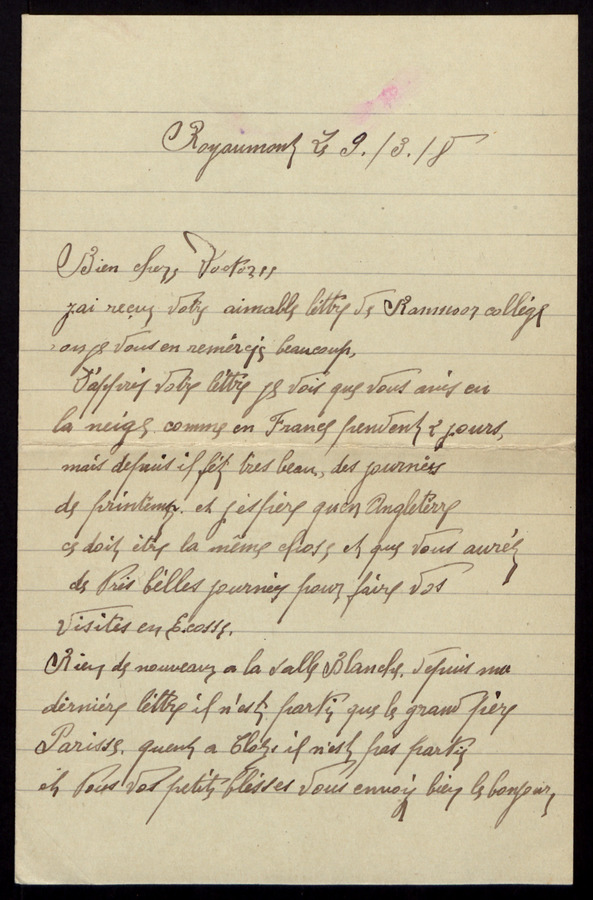 Royaumont Le 9./3./8
Bien chere Doctores
jai reçue votre aimable lettre de Ranmoor collége
ou je vous en remércie beaucoup,
D'aprrés votre léttre je vois que vous avés eu
la neige comme en France pendent 2 jours,
mais depuis il fét tres beau, des journées
de printemp. et j'espère quen Anglétérre
ce doit étre la même chose et que vous auréz
de trés bélles journées pour faire vos
visites en Ecosse,
Rien de nouveau a la salle Blanche, depuis ma
dérniére léttre il n'est partie que le grand pére
Parisse, quent a Clots il n'est pas partie
et tous vos petits bléssés vous envoie bien le bonjour,